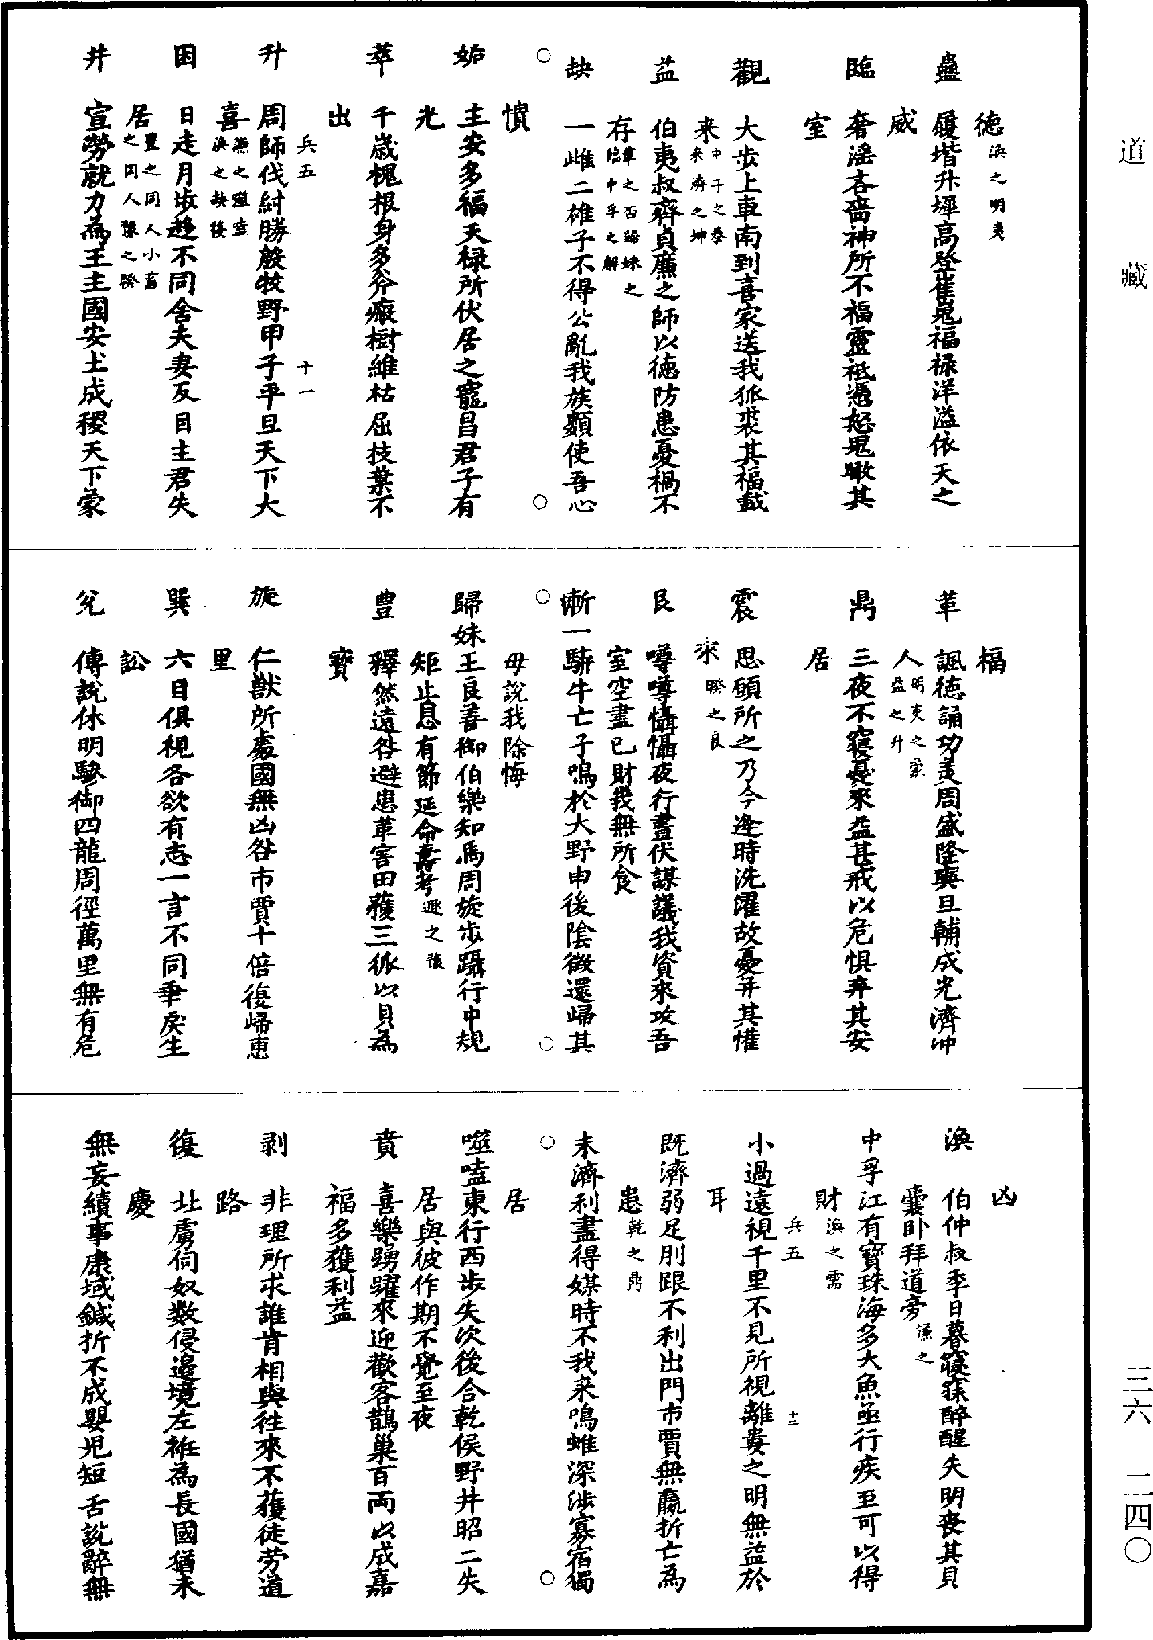 德渙之明夷
蠱　履堦升墀高登崔嵬福祿洋溢依天之
威
臨　奢淫吝嗇神所不福靈祗憑怒鬼瞰其
室
觀　大步上車南到喜家送我狐裘與福載
來中孚之泰來濟之坤
益　伯夷叔齊貞廉之師以德防患憂禍不
存革之否歸妹之臨中孚之解
缺　一雌二雄子不得公亂我族類使吾心
憒
姤　主安多福天祿所伏居之寵昌君子有
光
萃　千歲槐根身多斧瘢樹維枯屈枝葉不
出
兵五　十一
升　周師伐紂勝殷牧野甲子平旦天下大
喜
困　日走月步趍不同舍夫妻反目主君失
居之同人小畜之同人
井　宣勞就力為王主國安土成稷天下蒙
福
革　諷德誦功美周盛隆輿旦輔成光濟沖
人明夷之益之升
鼎　三夜不寢憂來益甚戒以危懼弃其安
居
震　思願所之乃今逢時洗濯故憂拜其懽
來睽之艮
艮　噂噂懾懾夜行晝伏謀議我資來攻吾
室空盡已財幾無所食
漸　一騂牛亡子鳴於大野申後陰微還歸其
母說我除悔
歸妹王良善御伯樂知馬周旋步躡行中規
矩止息有節延命壽考遯之復
豊　釋然遠咎避患革害田獲三狐以貝為
寶
旋　仁獸所處國無凶咎市賈十倍復歸惠
里
巽　六目俱視各欲有志一言不同乖戾生
訟
兌　傳說休明驂御四龍周徑萬里無有危
凶
渙　伯仲叔季日暮寢寐醉醒失明喪其貝
囊卧拜道旁謙之
中孚江有寶珠海多大魚亟行疾至可以得
財渙之需
小過遠視千里不見所視離婁之明無益於
耳
兵五　十二
既濟弱足刖跟不利出門市賈無贏折亡為
患乾之鼎
未濟利盡得媒時不我來鳴雌深涉寡宿獨
居
噬嗑東行西步失次後合乾侯野井昭二失
居與彼作期不覺至夜
賁　喜樂踴躍來迎歡客鵲巢百兩以成嘉
福多獲利益
剥　非理所求誰肯相與往來不獲徒劳道
路
復　北虜伺奴數侵邉境左衽為長國猶未
慶
無妄績事康域鍼折不成嬰児短舌說辭無
道藏
三六　二四〇